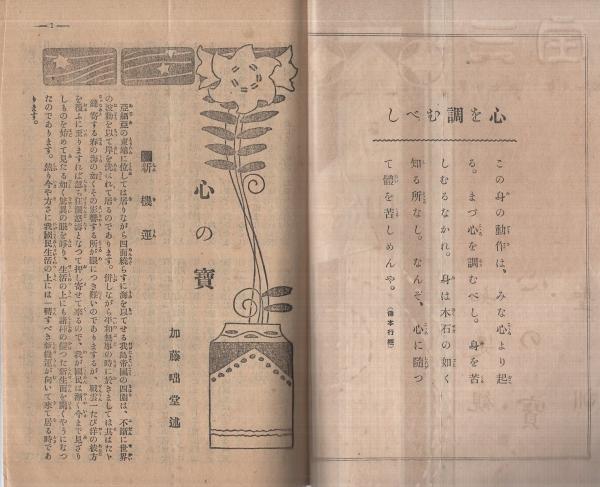 心を調むべし
この身の動作は、みな心より起
る。まづ心を調むべし。身を苦
しむるなかれ。身は木石の如く
知る所なし。なんぞ、心に隨つ
て體を苦しめんや。（佛本行經）
— 1 —
心の寶
加藤咄堂述
■新機運
亞細亞の東端に位しては居りながら四面繞らすに海を以てせる我島帝國の四圍は、不斷に世界
の波動を以て岸を洗はれて居るのであります。併しながら平和無事の時に於きましては其はたゞ
寄する春の海の如くその影響する所が眼につき難いのでありまするが、戰雲一たび洋の彼方
を覆ふに至りますれば忽ち狂瀾怒濤となつて押し寄せて來るので、我が國民は漸く今まで見ざり
しものを始めて見たる如く驚異の眼を睜り、生活の上にも諸種の變つた新生面を開くやうになつ
たのであります。然り今や方さに我國民生活の上には一轉すべき新機運が向いて來て居る時であ
ります。